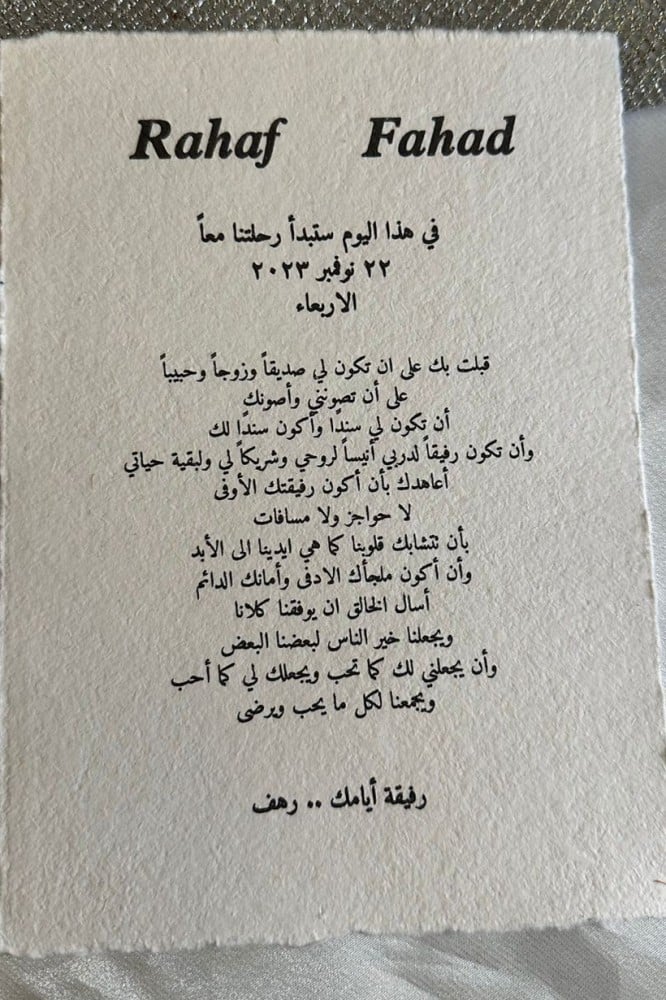 Rahaf Fahad
في هذا اليوم ستبدأ رحلتنا معاً
٢٢ نوفمبر ٢٠٢٣
الاربعاء
قبلت بك على ان تكون لي صديقاً وزوجاً وحبيباً
على أن تصونني وأصونك
أن تكون لي سندًا وأكون سندًا لك
وأن تكون رفيقاً لدربي أنيساً لروحي وشريكاً لي ولبقية حياتي
أعاهدك بأن أكون رفيقتك الأوفى
لا حواجز ولا مسافات
بأن تتشابك قلوبنا كما هي ايدينا الى الأبد
وأن أكون ملجأك الادفى وأمانك الدائم
أسال الخالق ان يوفقنا كلانا
ويجعلنا خير الناس لبعضنا البعض
وأن يجعلني لك كما تحب ويجعلك لي كما أحب
ويجمعنا لكل ما يحب ويرضى
رفيقة أيامك .. رهف